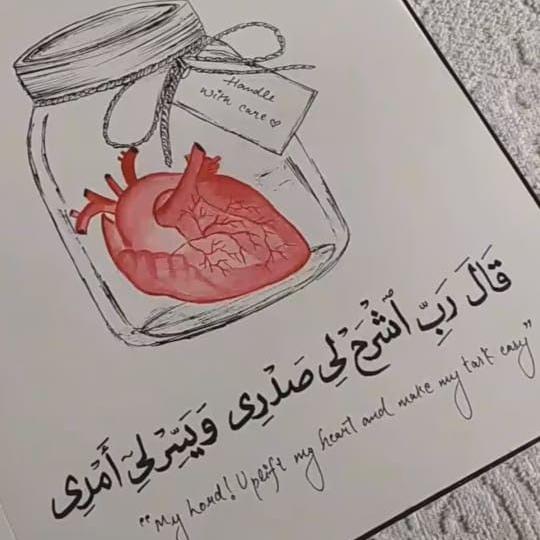 Handle
with care ♡
قَالَ رَبِّ ٱشْرَحْ لِي صَدْرِي وَيَسِّرْ لِيٓ أَمْرِي
"My Lord! Uplift my heart and make my task easy"